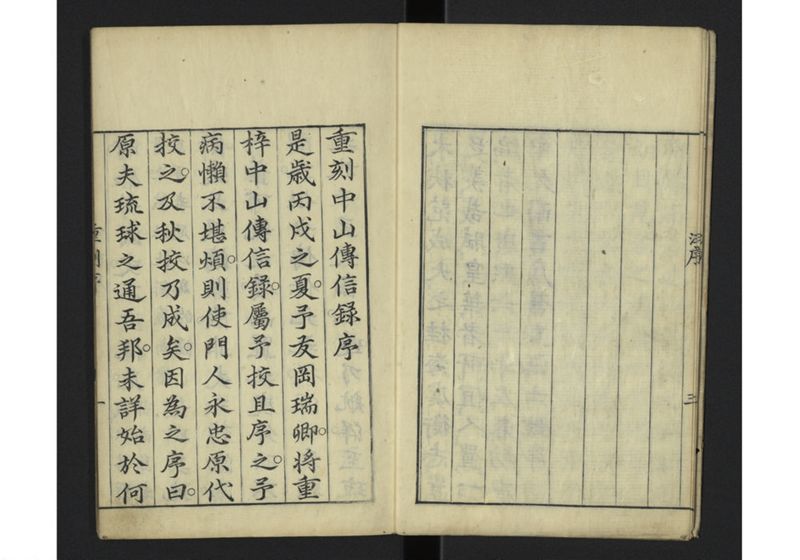 汪序
三
重刻中山傳信録序
是歳丙戌之夏。予友岡瑞卿。將重
梓中山傳信録。屬予挍且序之。予
病懶不堪煩。則使門人永忠原代
挍之。及秋挍乃成矣。因為之序曰。
原夫琉球之通吾邦。未詳始於何
一